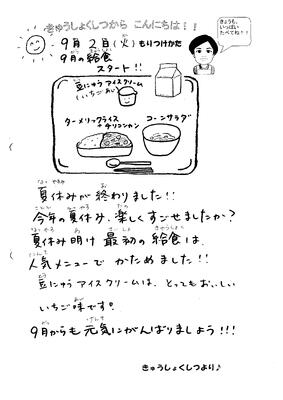 きゅうしょくしつから こんにちは!!
きょうも、
いっぱい
たべてね!!
9月2日(火)もりつけかた
9月の給食
スタート!!
豆にゅうアイスクリーム
(いちごあじ)
ターメリックライス
+チリコンカン
コーンサラダ
夏休みが終わりました!!
今年の夏休み、楽しくすごせましたか?
夏休み明け最初の給食は、
人気メニューでかためました!!
豆にゅうアイスクリームは、とってもおいしい
いちご味です。
9月からも元気にがんばりましょう!!!
きゅうしょくしつより♪